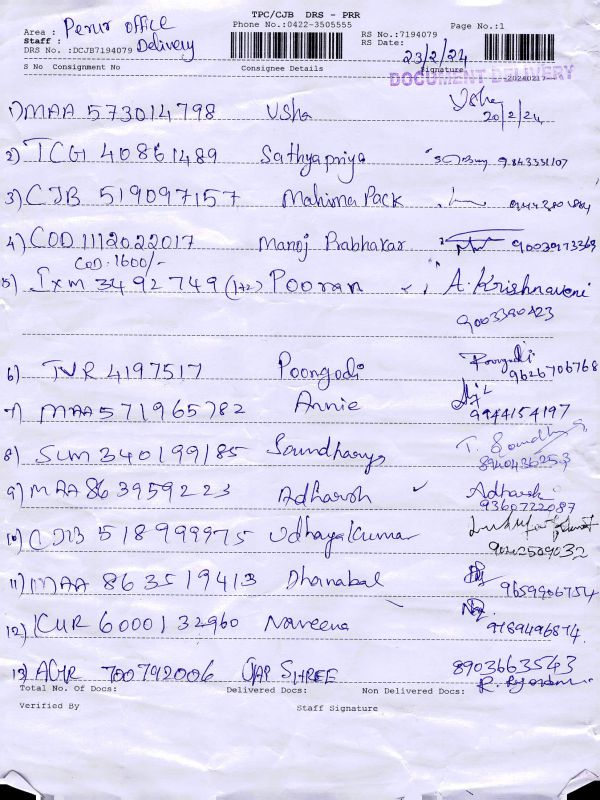 TPC/CJB DRS - PRR
Area : Perur Office Phone No.:0422-3505555 Page No.:1
Staff : Delivery RS No.:7194079
DRS No. :DCJB7194079 RS Date: 23/2/24
S No Consignment No Consignee Details Signature
DOCUMENT DELIVERY
20240217
1) MAA 573014798 Usha Usha 20/2/24
2) TCG 40861489 Sathyapriya 9843331107
3) CJB 519097157 Mahima Pack
4) COD 1112022017 Manoj Prabhakar
COD: 1600/-
5) Ixm 3492749 (1+2) Pooran A. Krishnaveni
9003390423
6) TVR 4197517 Poongodi Poongodi 9626706768
7) MAA 571965782 Annie 9944154197
8) SLM 340199185 Soundharya T. Soundharya 8940436253
9) MAA 863959223 Adharsh Adharsh 9360722087
10) CJB 518999975 Udhayakumar 9042509032
11) MAA 863519413 Dhanabal 9659906754
12) KUR 6000132960 Naveena 9789496874
13) AGR 700792006 JAP SHREE 8903663543
Total No. Of Docs: Delivered Docs: Non Delivered Docs:
Verified By Staff Signature